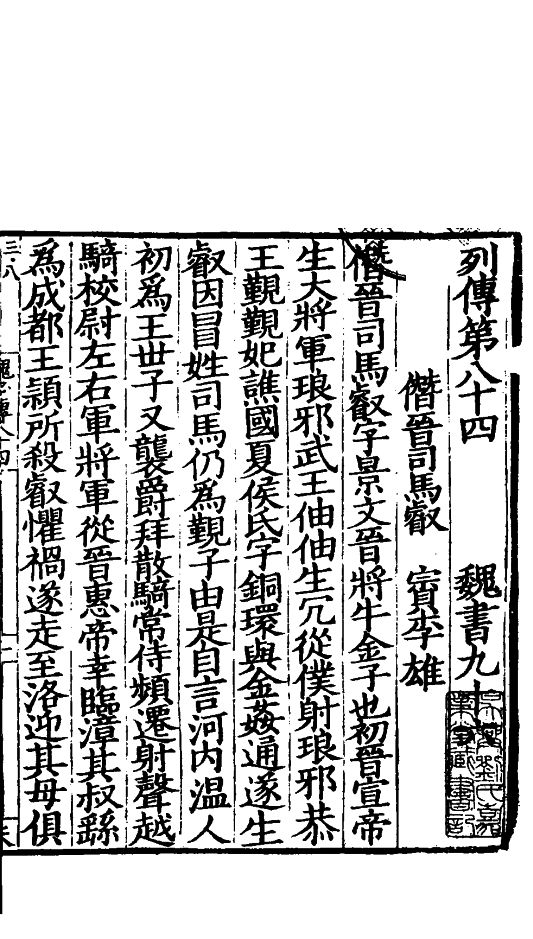 列傳第八十四　魏書九十
僭晉司馬叡　賨李雄
僭晉司馬叡字景文晉將牛金子也初晉宣帝
生大將軍琅邪武王伷伷生宂從僕射琅邪恭
王覲覲妃譙國夏侯氏字銅環與金姦通遂生
叡因冒姓司馬仍爲覲子由是自言河内温人
初爲王世子又襲爵拜散騎常侍頻遷射聲越
騎校尉左右軍將軍從晉惠帝幸臨漳其叔繇
爲成都王頴所殺叡懼禍遂走至洛迎其母俱
三八